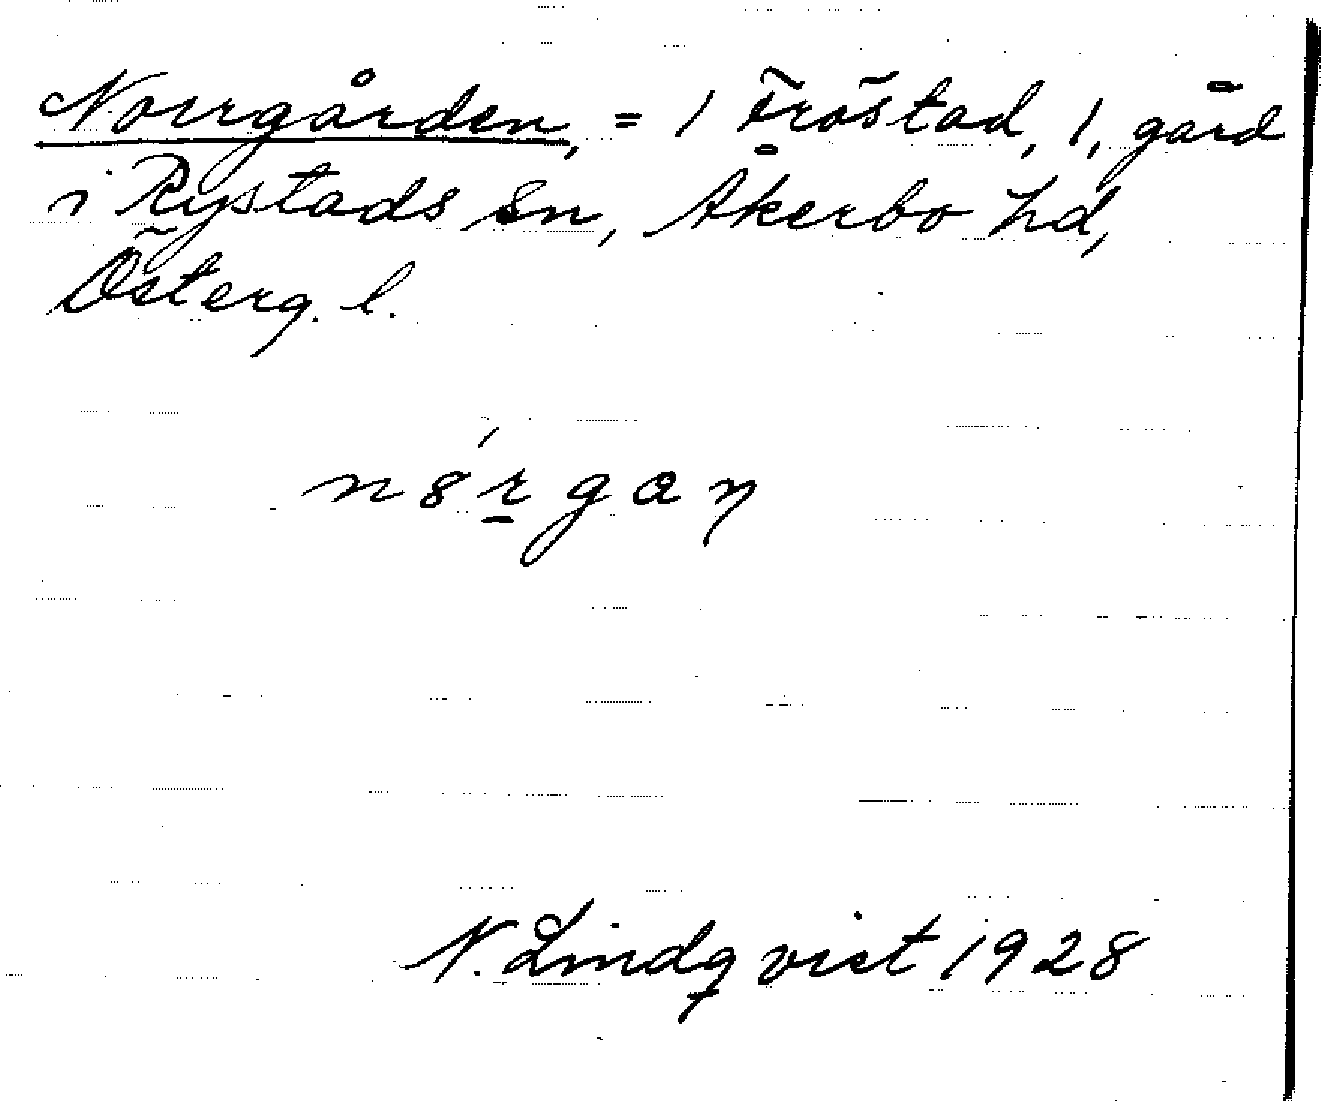 Norrgården, = 1 Fröstad, 1, gård
i Rystads sn, Åkerbo hd,
Österg. l.
n8́rgaŋ
N. Lindqvist 1928